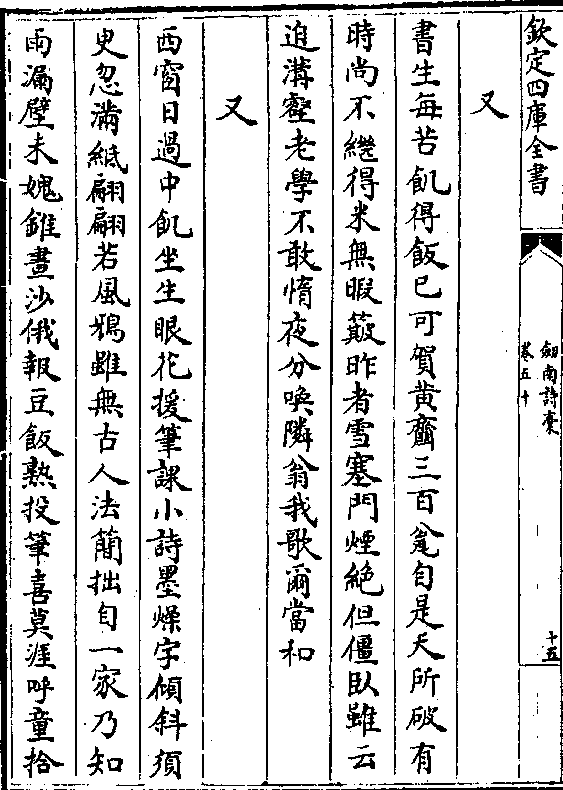 欽定四庫全書
劒南詩稾
卷五十
十五
又
書生每苦飢得飯已可賀黄虀三百瓮自是天所破有
時尚不繼得米無暇簸昨者雪塞門煙絶但僵臥雖云
迫溝壑老學不敢惰夜分喚隣翁我歌爾當和
又
西窗日過中飢坐生眼花援筆課小詩墨燥字傾斜須
臾忽滿紙翩翩若風鴉雖無古人法簡拙自一家乃知
雨漏壁未媿錐畫沙俄報豆飯熟投筆喜莫涯呼童拾